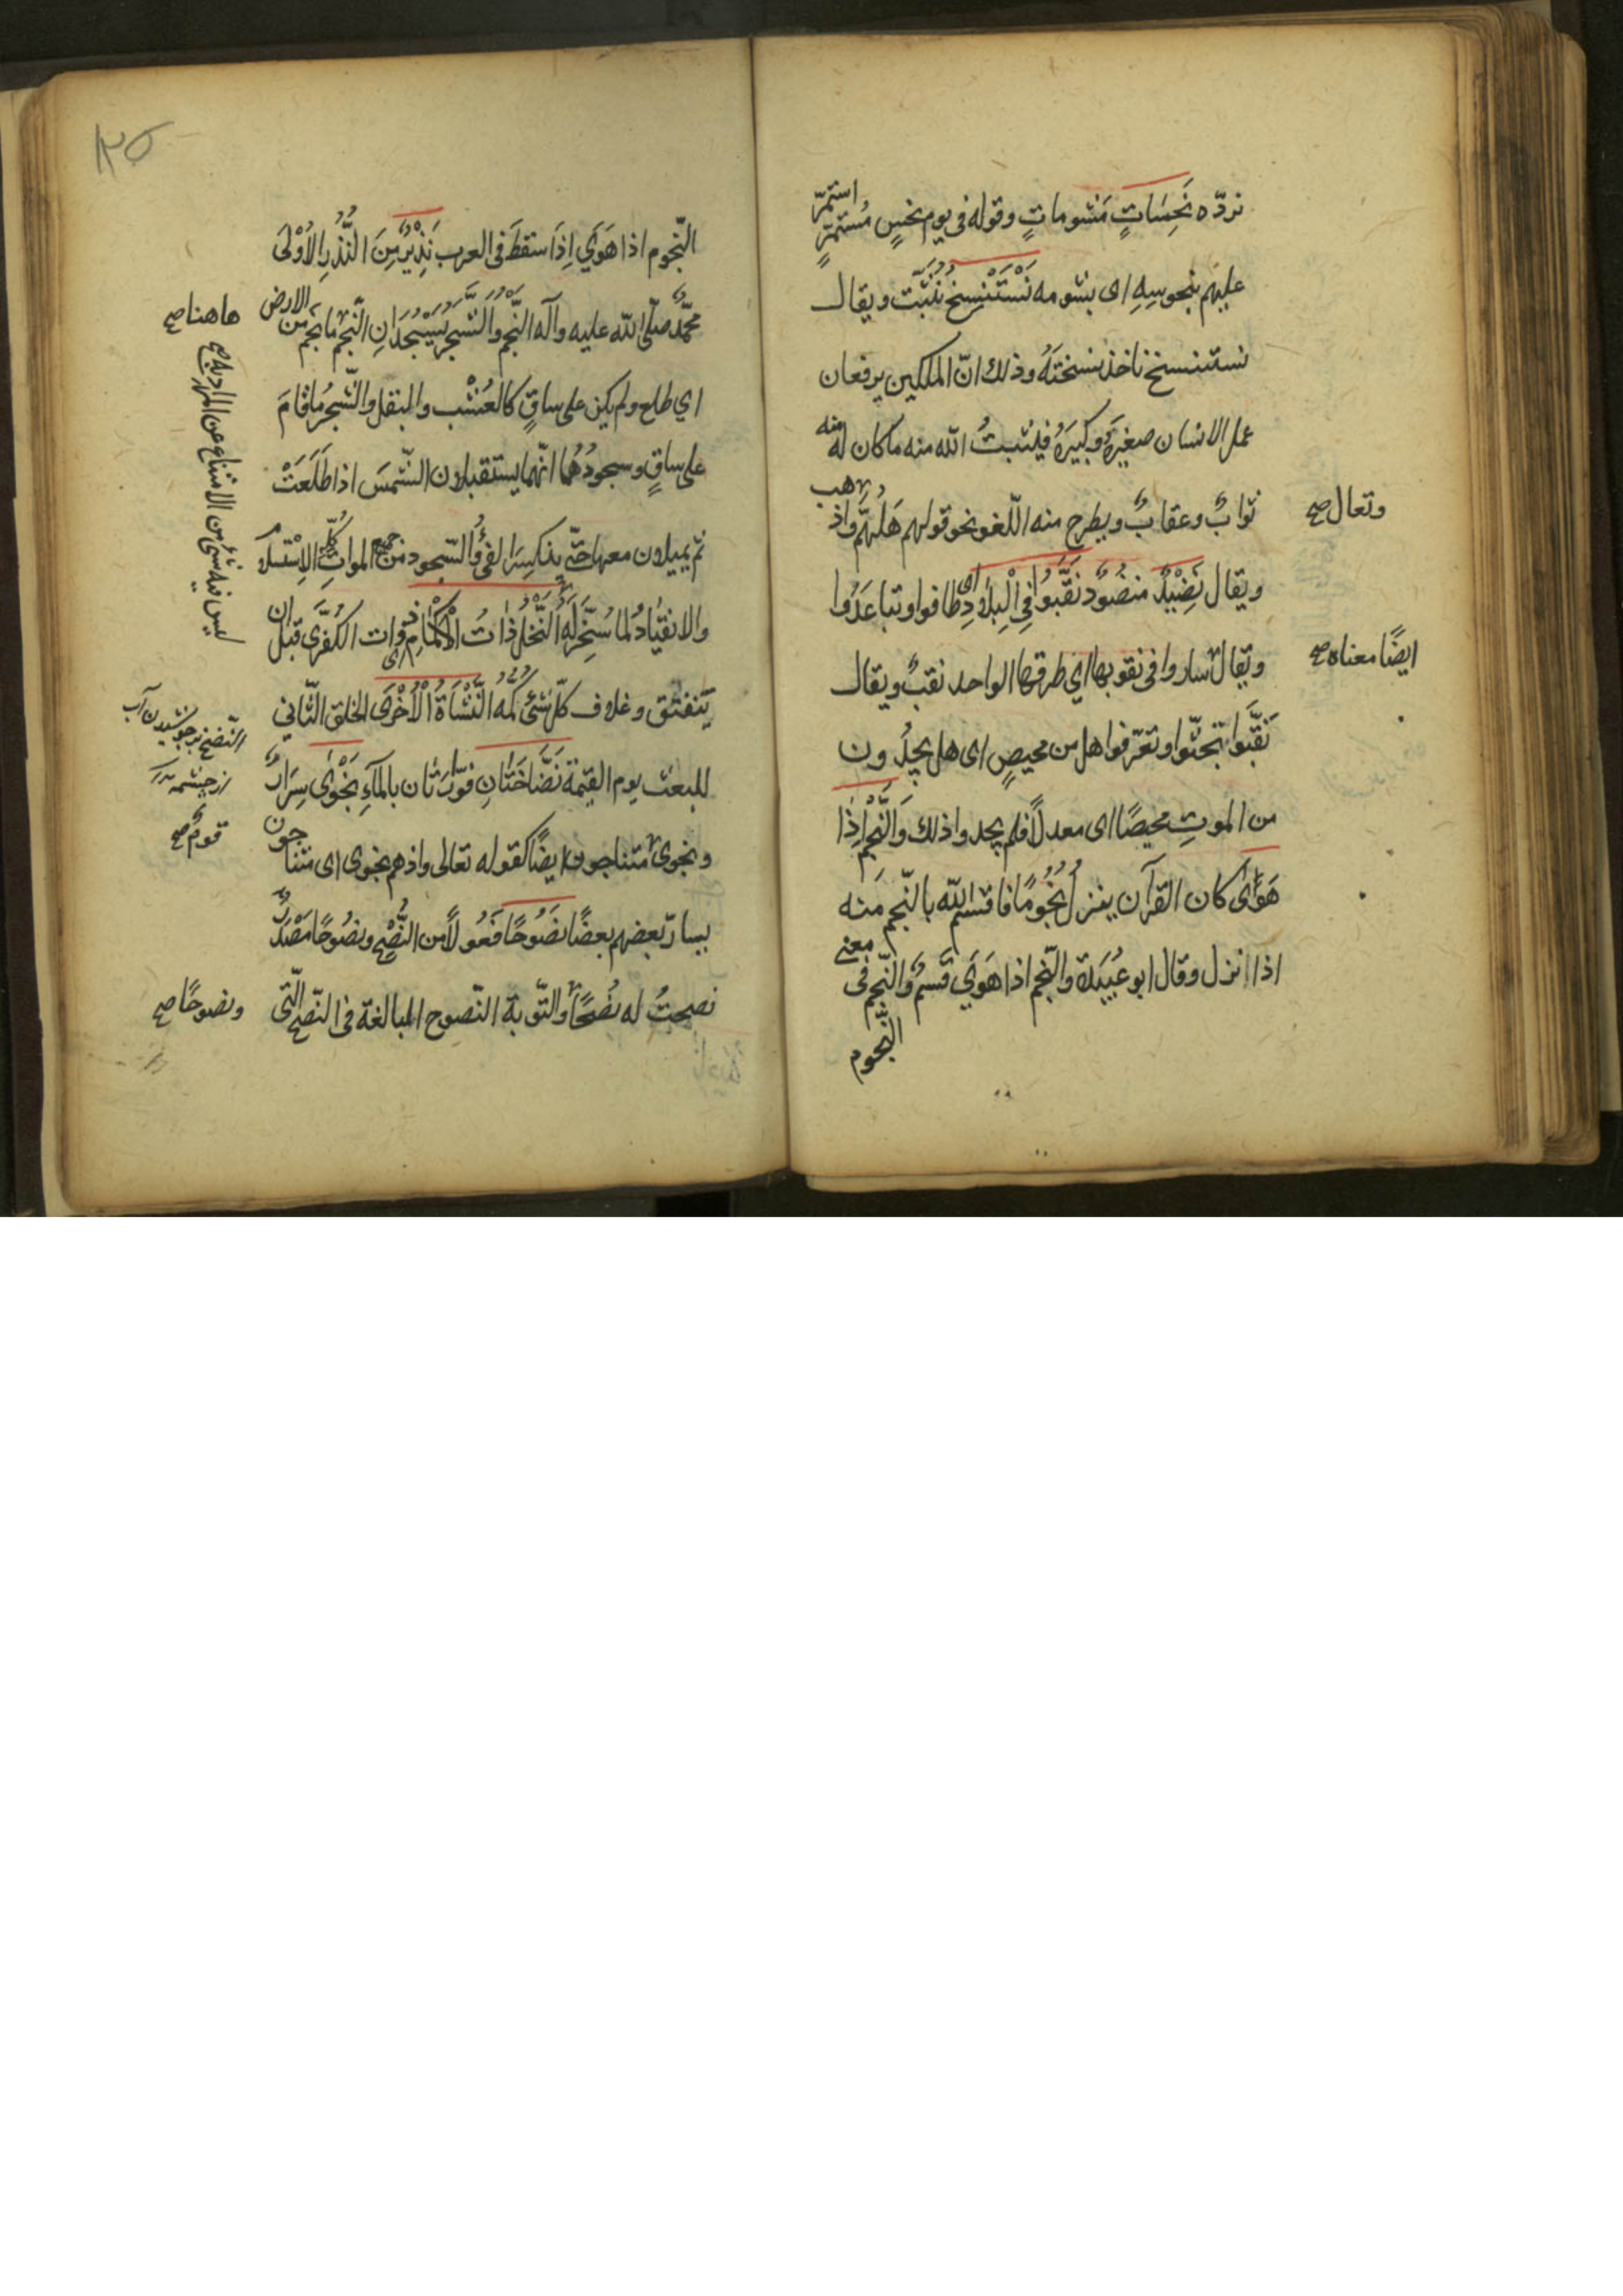 نردّه نَحِسَاتٍ مَشوماتٍ وقوله فى يوم نحسٍ مُستمرّ استمرّ
عليهم بنحوسِهِ اى بشومه نَسْتَنْسِخُ نُثَبّت ويقال
نستنسخ ناخذ نسختَهُ وذلك انّ الملكين يرفعان
عمل الانسان صغيرَهُ وكبيرَهُ فيثبتُ الله منه ما كان له منه
ثوابٌ وعقابٌ ويطرح منه اللّغو نحو قولهم هَلُمَّ واذهب
وتعال صح
ويقال نَضِيْدٌ منضُودٌ نَقَّبُوا فِي الْبِلَادِ اى طافوا وتباعَدُوا
ويقال ساروا فى نقوبها اي طرقها الواحد نقبٌ ويقال
ايضًا معناه صح
نَقَّبُوا بَحثّوا وتعرّفوا هل من محيصٍ اى هل يجدُون
من الموتِ محيصًا اى معدلًا فلم يجدوا ذلك وَالنَّجْمِ اِذَا
هَوٰى كان القرآن ينزلُ نُجُومًا فاقسم الله بالنّجم منه
اذا نزل وقال ابو عُبَيدَة والنّجم اذا هَوَي قَسمٌ والنّجم فى معنى
النّجوم
النّجوم اذا هَوَي اِذَا سقطَ فى العرب نَذِيْرٌ مِنَ النُّذُرِ الاُوْلَى
محمّدٌ صلّى الله عليه وآله النَّجْمُ وَالشَّجَرُ يَسْجُدَانِ النّجم ما نجم من الارض
هاهنا صح
اي طلع ولم يكن على ساقٍ كالعُشْب والبقل والشّجرُ ما قامَ
على ساقٍ وسجودُهُما انّهما يستقبلان الشّمسَ اذا طَلَعَتْ
ثم يميلان معها حتّى ينكسِرَ الفئُ والسّجود من جميع المواتِ كُلِّهِ الاِسْتسلام
والانقيادُ لما سُخِّرَ لَهُ النَّخْلُ ذَاتُ الْاَكْمَامِ اى ذوات الكُفَرَّى قبل ان
يَتفتق وغلاف كلّ شئ كُمّه النَّشْاَةَ الْاُخْرَى الخلق الثّاني
للبعث يوم القيمة نَضَّاخَتَانِ فوّارَتان بالمآءِ نَجْوٰى سِرَارٌ
ونجوى متناجون ايضًا كقوله تعالى واذ هم نجوى اى متناجون
يسارّ بعضهم بعضًا نَصُوحًا فَعُولًا من النُّصْحِ ونصُوحًا مَصْدرٌ
نصحتُ له نُصْحًا والتّوبة النّصوح المبالغة فى النّصح الّتى
ونصوحًا صح
ليس فيه شئ من الامتناع عن المراد به صح
النّضخ بر جوشيدن آب
از چشمه
قومٌ صح